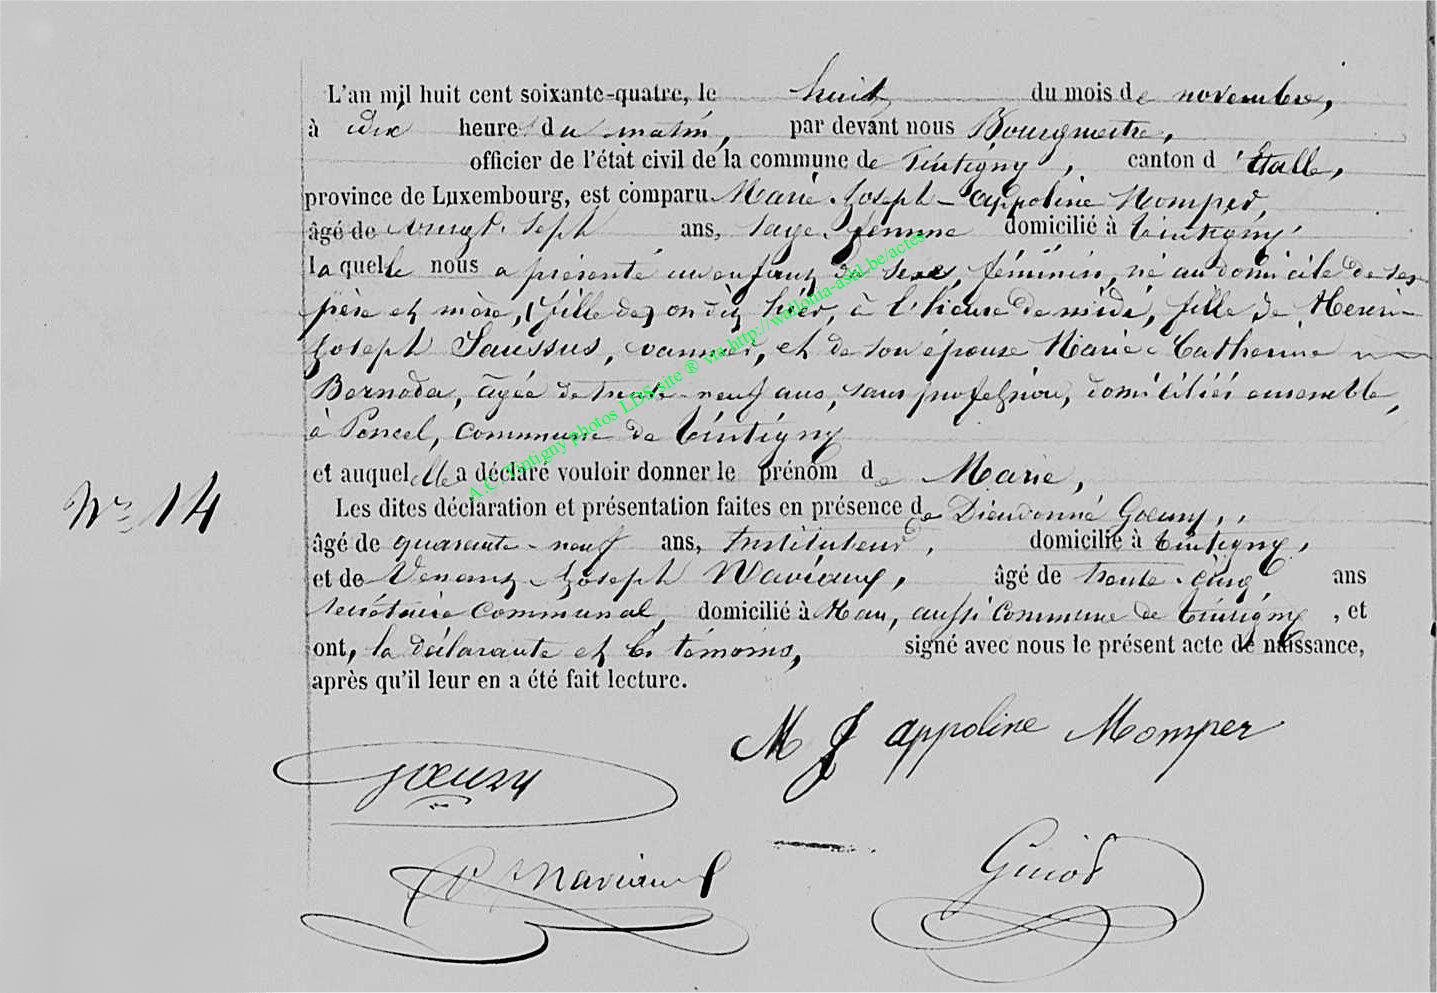 L'an mil huit cent soixante-quatre, le huit du mois de novembre,
à dix heures du matin, par devant nous Bourgmestre,
officier de l'état civil de la commune de Tintigny, canton d'Etalle,
province de Luxembourg, est comparu Marie-Joseph-appoline Momper,
âgé de vingt-sept ans, sage-femme domicilié à Tintigny
laquelle nous a présenté un enfant de sexe féminin, né au domicile de ses
père et mère, hier, à l'heure de midi, fille de Henri-
Joseph Saussus, vannier, et de son épouse Marie-Catherine
âgée de trente-neuf ans, sans profession, domiciliés ensemble,
à Poncel, commune de Tintigny
et auquel elle a déclaré vouloir donner le prénom de Marie,
N° 14
Les dites déclaration et présentation faites en présence de Dieudonné Goeury,
âgé de quarante-neuf ans, Instituteur, domicilié à Tintigny,
et de Venant-Joseph Naviaux, âgé de trente-cinq ans
secrétaire communal, domicilié à Han, aussi commune de Tintigny, et
ont, la déclarante et les témoins, signé avec nous le présent acte de naissance,
après qu'il leur en a été fait lecture.
M J appoline Momper
Goeury
Naviaux
Guiot
A.C. Tintigny photos LDS site ® via http://wallonia-asbl.be/actes